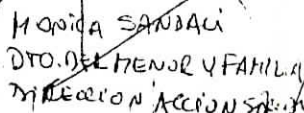 MONICA SANDALI
DTO. DEL MENOR Y FAMILIA
DIRECCION ACCION SOCIAL